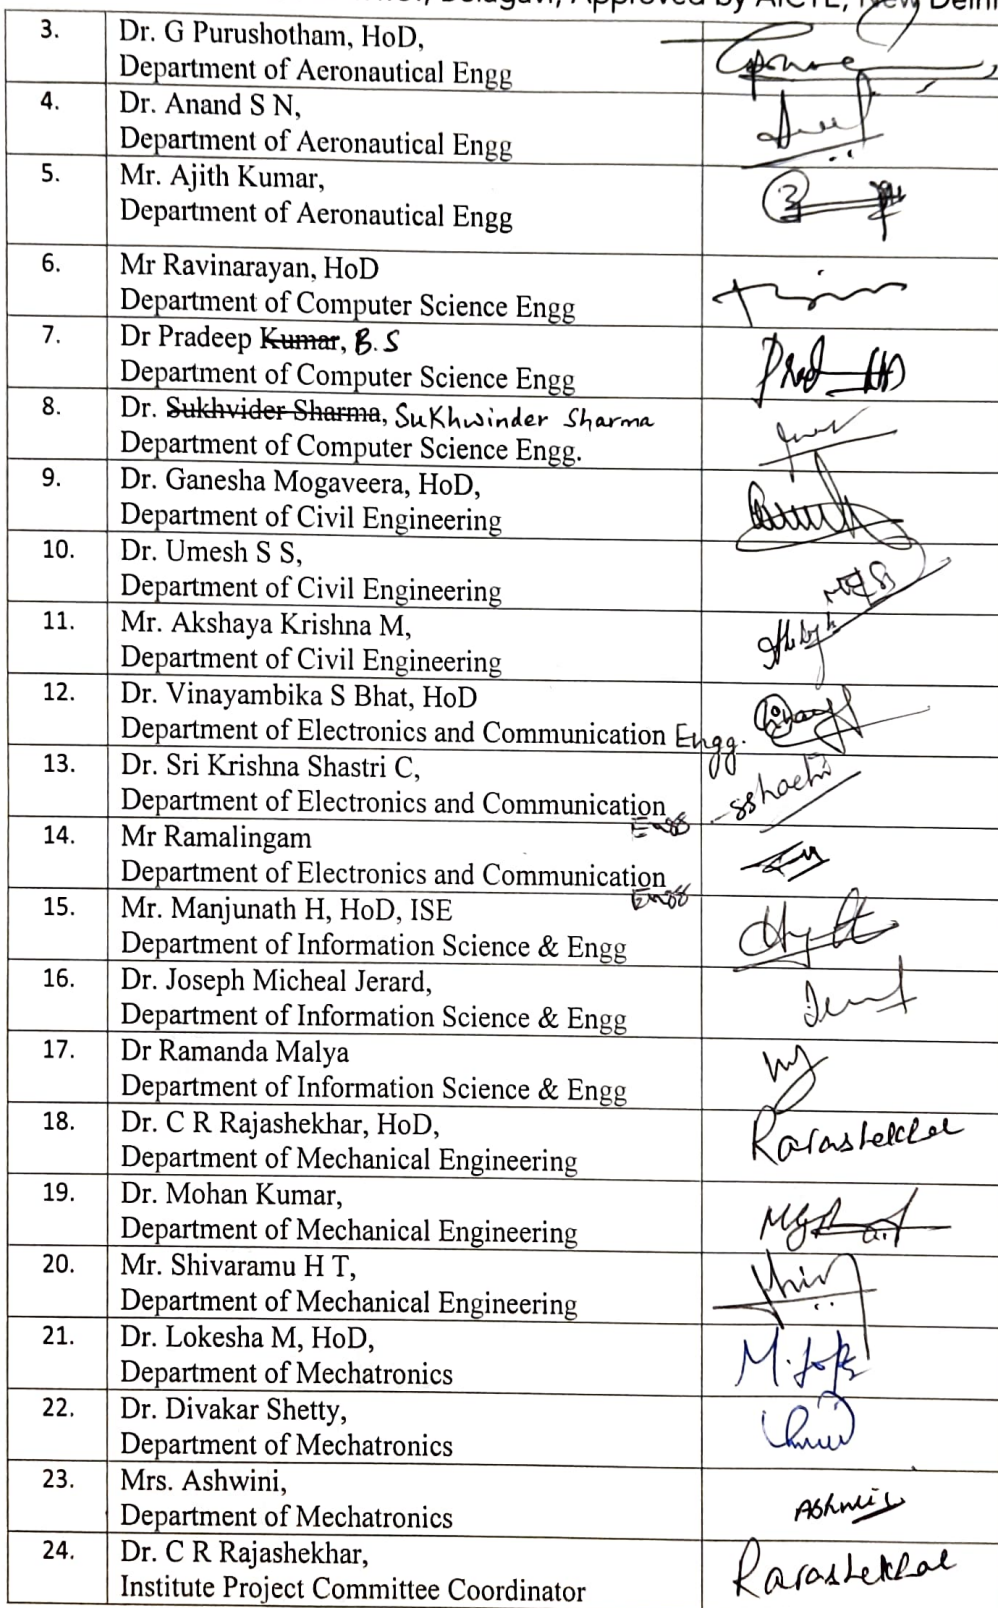 Belagavi, Approved by AICTE, New Delhi
3. Dr. G Purushotham, HoD,
Department of Aeronautical Engg
4. Dr. Anand S N,
Department of Aeronautical Engg
5. Mr. Ajith Kumar,
Department of Aeronautical Engg
6. Mr Ravinarayan, HoD
Department of Computer Science Engg
7. Dr Pradeep Kumar, B.S
Department of Computer Science Engg
8. Dr. Sukhvider Sharma, Sukhwinder Sharma
Department of Computer Science Engg.
9. Dr. Ganesha Mogaveera, HoD,
Department of Civil Engineering
10. Dr. Umesh S S,
Department of Civil Engineering
11. Mr. Akshaya Krishna M,
Department of Civil Engineering
12. Dr. Vinayambika S Bhat, HoD
Department of Electronics and Communication Engg.
13. Dr. Sri Krishna Shastri C,
Department of Electronics and Communication
Engg
14. Mr Ramalingam
Department of Electronics and Communication
Engg
15. Mr. Manjunath H, HoD, ISE
Department of Information Science & Engg
16. Dr. Joseph Micheal Jerard,
Department of Information Science & Engg
17. Dr Ramanda Malya
Department of Information Science & Engg
18. Dr. C R Rajashekhar, HoD, Rarashekhar
Department of Mechanical Engineering
19. Dr. Mohan Kumar,
Department of Mechanical Engineering
20. Mr. Shivaramu H T,
Department of Mechanical Engineering
21. Dr. Lokesha M, HoD,
Department of Mechatronics
22. Dr. Divakar Shetty,
Department of Mechatronics
23. Mrs. Ashwini, Ashwini
Department of Mechatronics
24. Dr. C R Rajashekhar, Rarashekhar
Institute Project Committee Coordinator